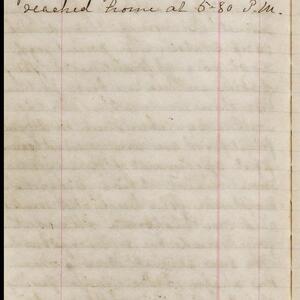 reached home at 5-30 P.M.